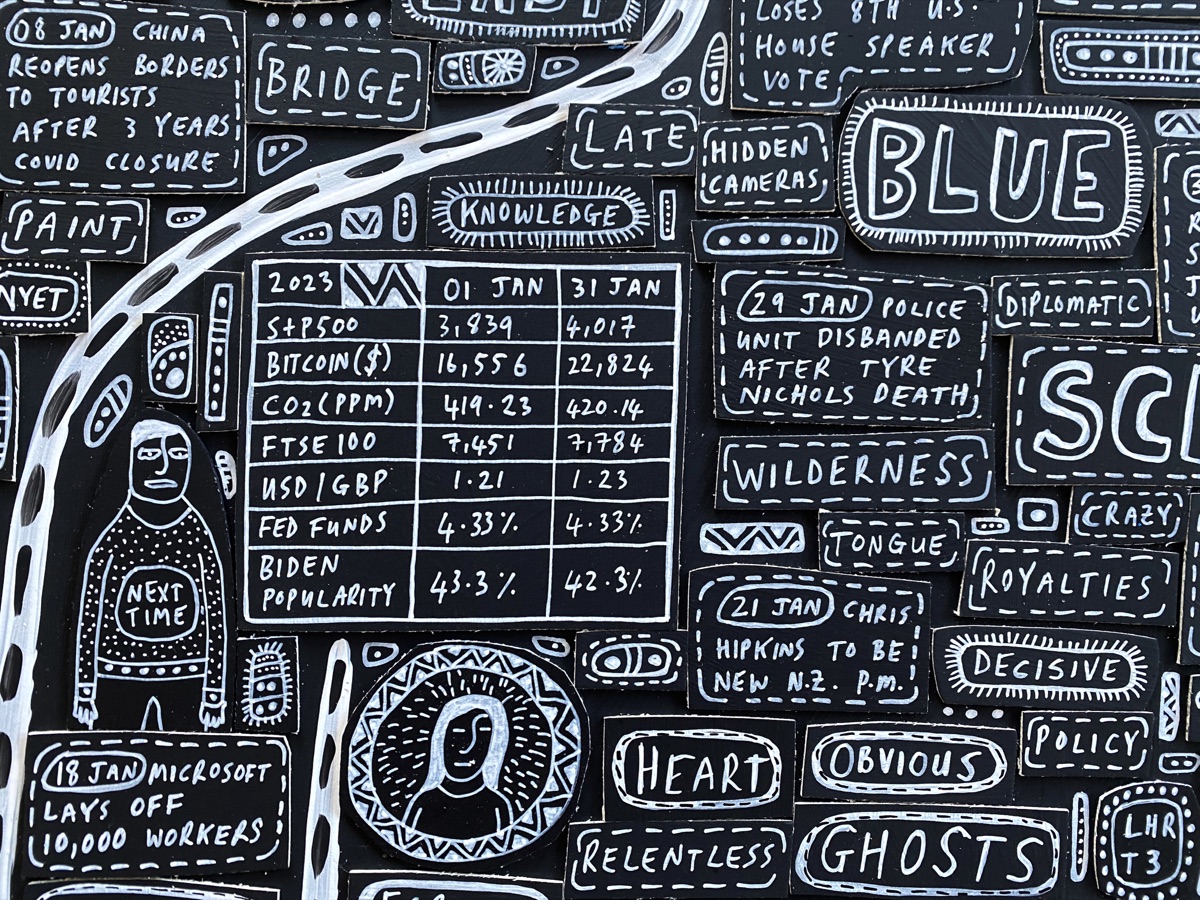 EAST
08 JAN CHINA
REOPENS BORDERS
TO TOURISTS
AFTER 3 YEARS
COVID CLOSURE
BRIDGE
LOSES 8TH U.S.
HOUSE SPEAKER
VOTE
LATE
HIDDEN
CAMERAS
BLUE
PAINT
KNOWLEDGE
NYET
2023 01 JAN 31 JAN
S+P500 3,839 4,017
BITCOIN($) 16,556 22,824
CO2(PPM) 419.23 420.14
FTSE 100 7,451 7,784
USD/GBP 1.21 1.23
FED FUNDS 4.33% 4.33%
BIDEN
POPULARITY 43.3% 42.3%
29 JAN POLICE
UNIT DISBANDED
AFTER TYRE
NICHOLS DEATH
DIPLOMATIC
SCI
WILDERNESS
CRAZY
TONGUE
ROYALTIES
NEXT
TIME
21 JAN CHRIS
HIPKINS TO BE
NEW N.Z. P.M.
DECISIVE
POLICY
18 JAN MICROSOFT
LAYS OFF
10,000 WORKERS
HEART
OBVIOUS
RELENTLESS
GHOSTS
LHR
T3